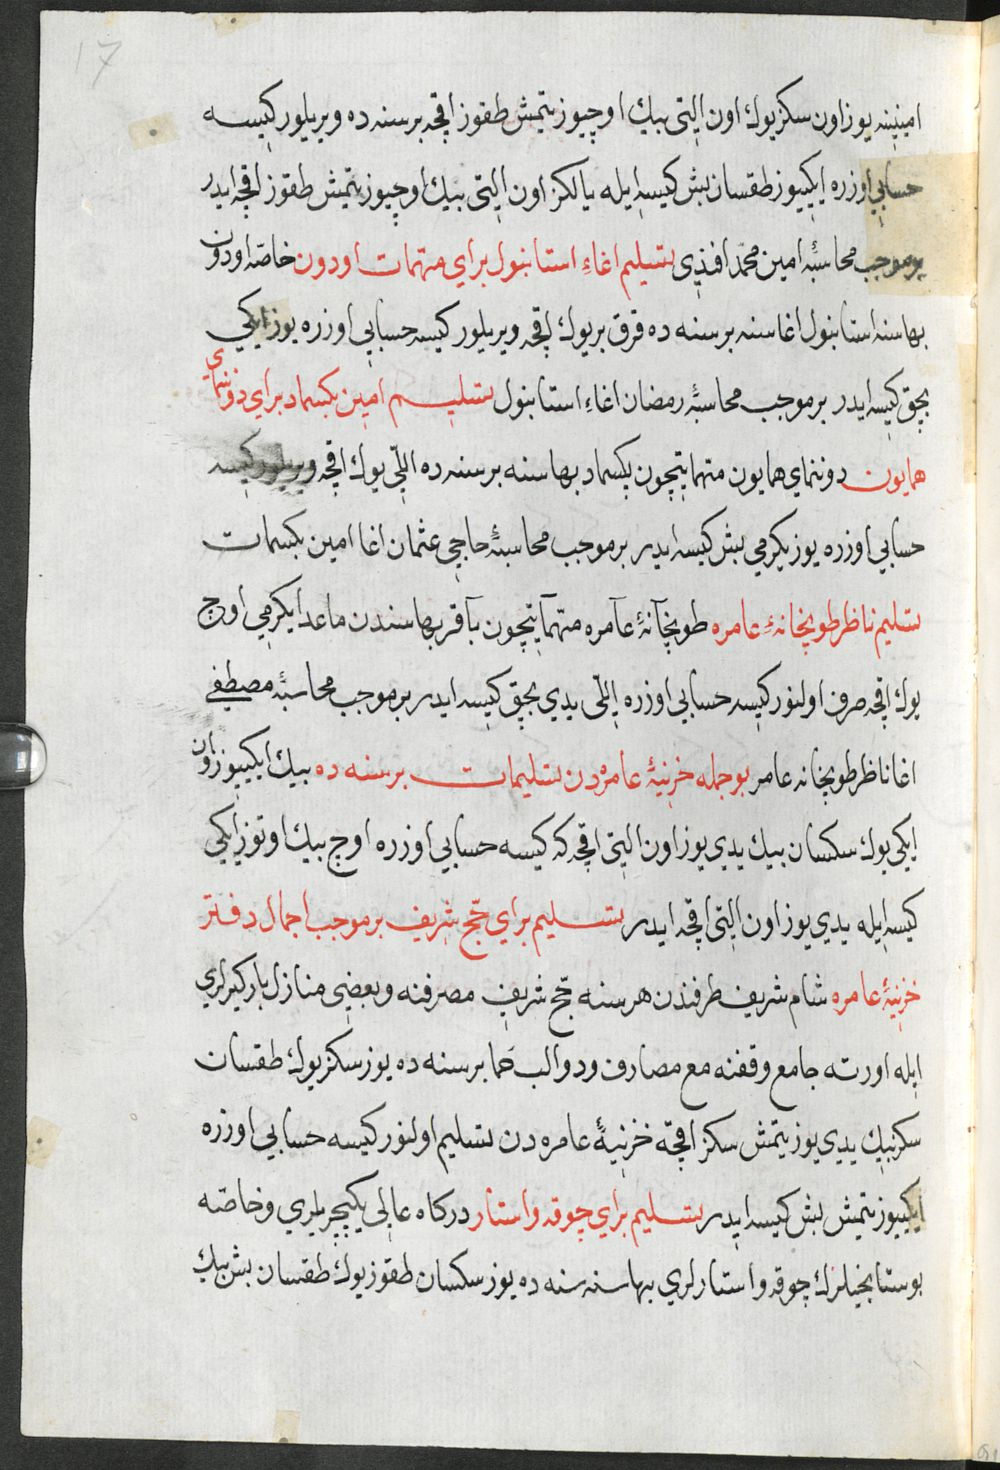 17
امینینه یوز اون سکز یوك اون التی بیك اوچیوز یتمش طقوز اقچه بر سنه ده ویریلور کیسه
حسابی اوزره ایکییوز طقسان بش کیسه ایله یالکز اون التی بیك اوچیوز یتمش طقوز اقچه ایدر
بر موجب محاسبۀ امین محمد افندی تسلیم اغاء استانبول برای متهمات اودون خاصه اودون
بهاسنه استانبول اغاسنه بر سنه ده قرق بر یوك اقچه ویریلور کیسه حسابی اوزره یوز ایکی
بچق کیسه ایدر بر موجب محاسبۀ رمضان اغاء استانبول تسلیم امین بکسماد برای دوننمای
همایون دوننمای همایون متهماتیچون بکسماد بهاسنه بر سنه ده اللی یوك اقچه ویریلور کیسه
حسابی اوزره یوز یکرمی بش کیسه ایدر بر موجب محاسبۀ حاجی عثمان اغا امین بکسمات
تسلیم ناظر طوپخانۀ عامره طوپخآنۀ عآمره متهمآتیچون بآقر بهاسندن ماعدا یکرمی اوچ
یوك اقچه صرف اولنور کیسه حسابی اوزره اللی یدی بچق کیسه ایدر بر موجب محاسبۀ مصطفی
اغا ناظر طوپخانه عامر بو جمله خزینۀ عامره دن تسلیمات بر سنه ده بیك ایکییوز اون
ایکی یوك سکسان بیك یدی یوز اون التی اقچه که کیسه حسابی اوزره اوچ بیك اوتوز ایکی
کیسه ایله یدی یوز اون التی اقچه ایدر تسلیم برای حج شریف بر موجب اجمال دفتر
خزینۀ عامره شام شریف طرفندن هر سنه حج شریف مصرفنه و بعضی منازل بارکیرلری
ایله اورته جامع وقفنه مع مصارف و دوالب حما بر سنه ده یوز سکز یوك طقسان
سکز بیك یدی یوز یتمش سکز اقچه خزینۀ عامره دن تسلیم اولنور کیسه حسابی اوزره
ایکییوز یتمیش بش کیسه ایدر تسلیم برای چوقه و استار درکاه عالی یکیچریلری و خاصه
بوستانجیلرك چوقه و استارلری بهاسنه سنه ده یوز سکسان طقوز یوك طقسان بش بیك